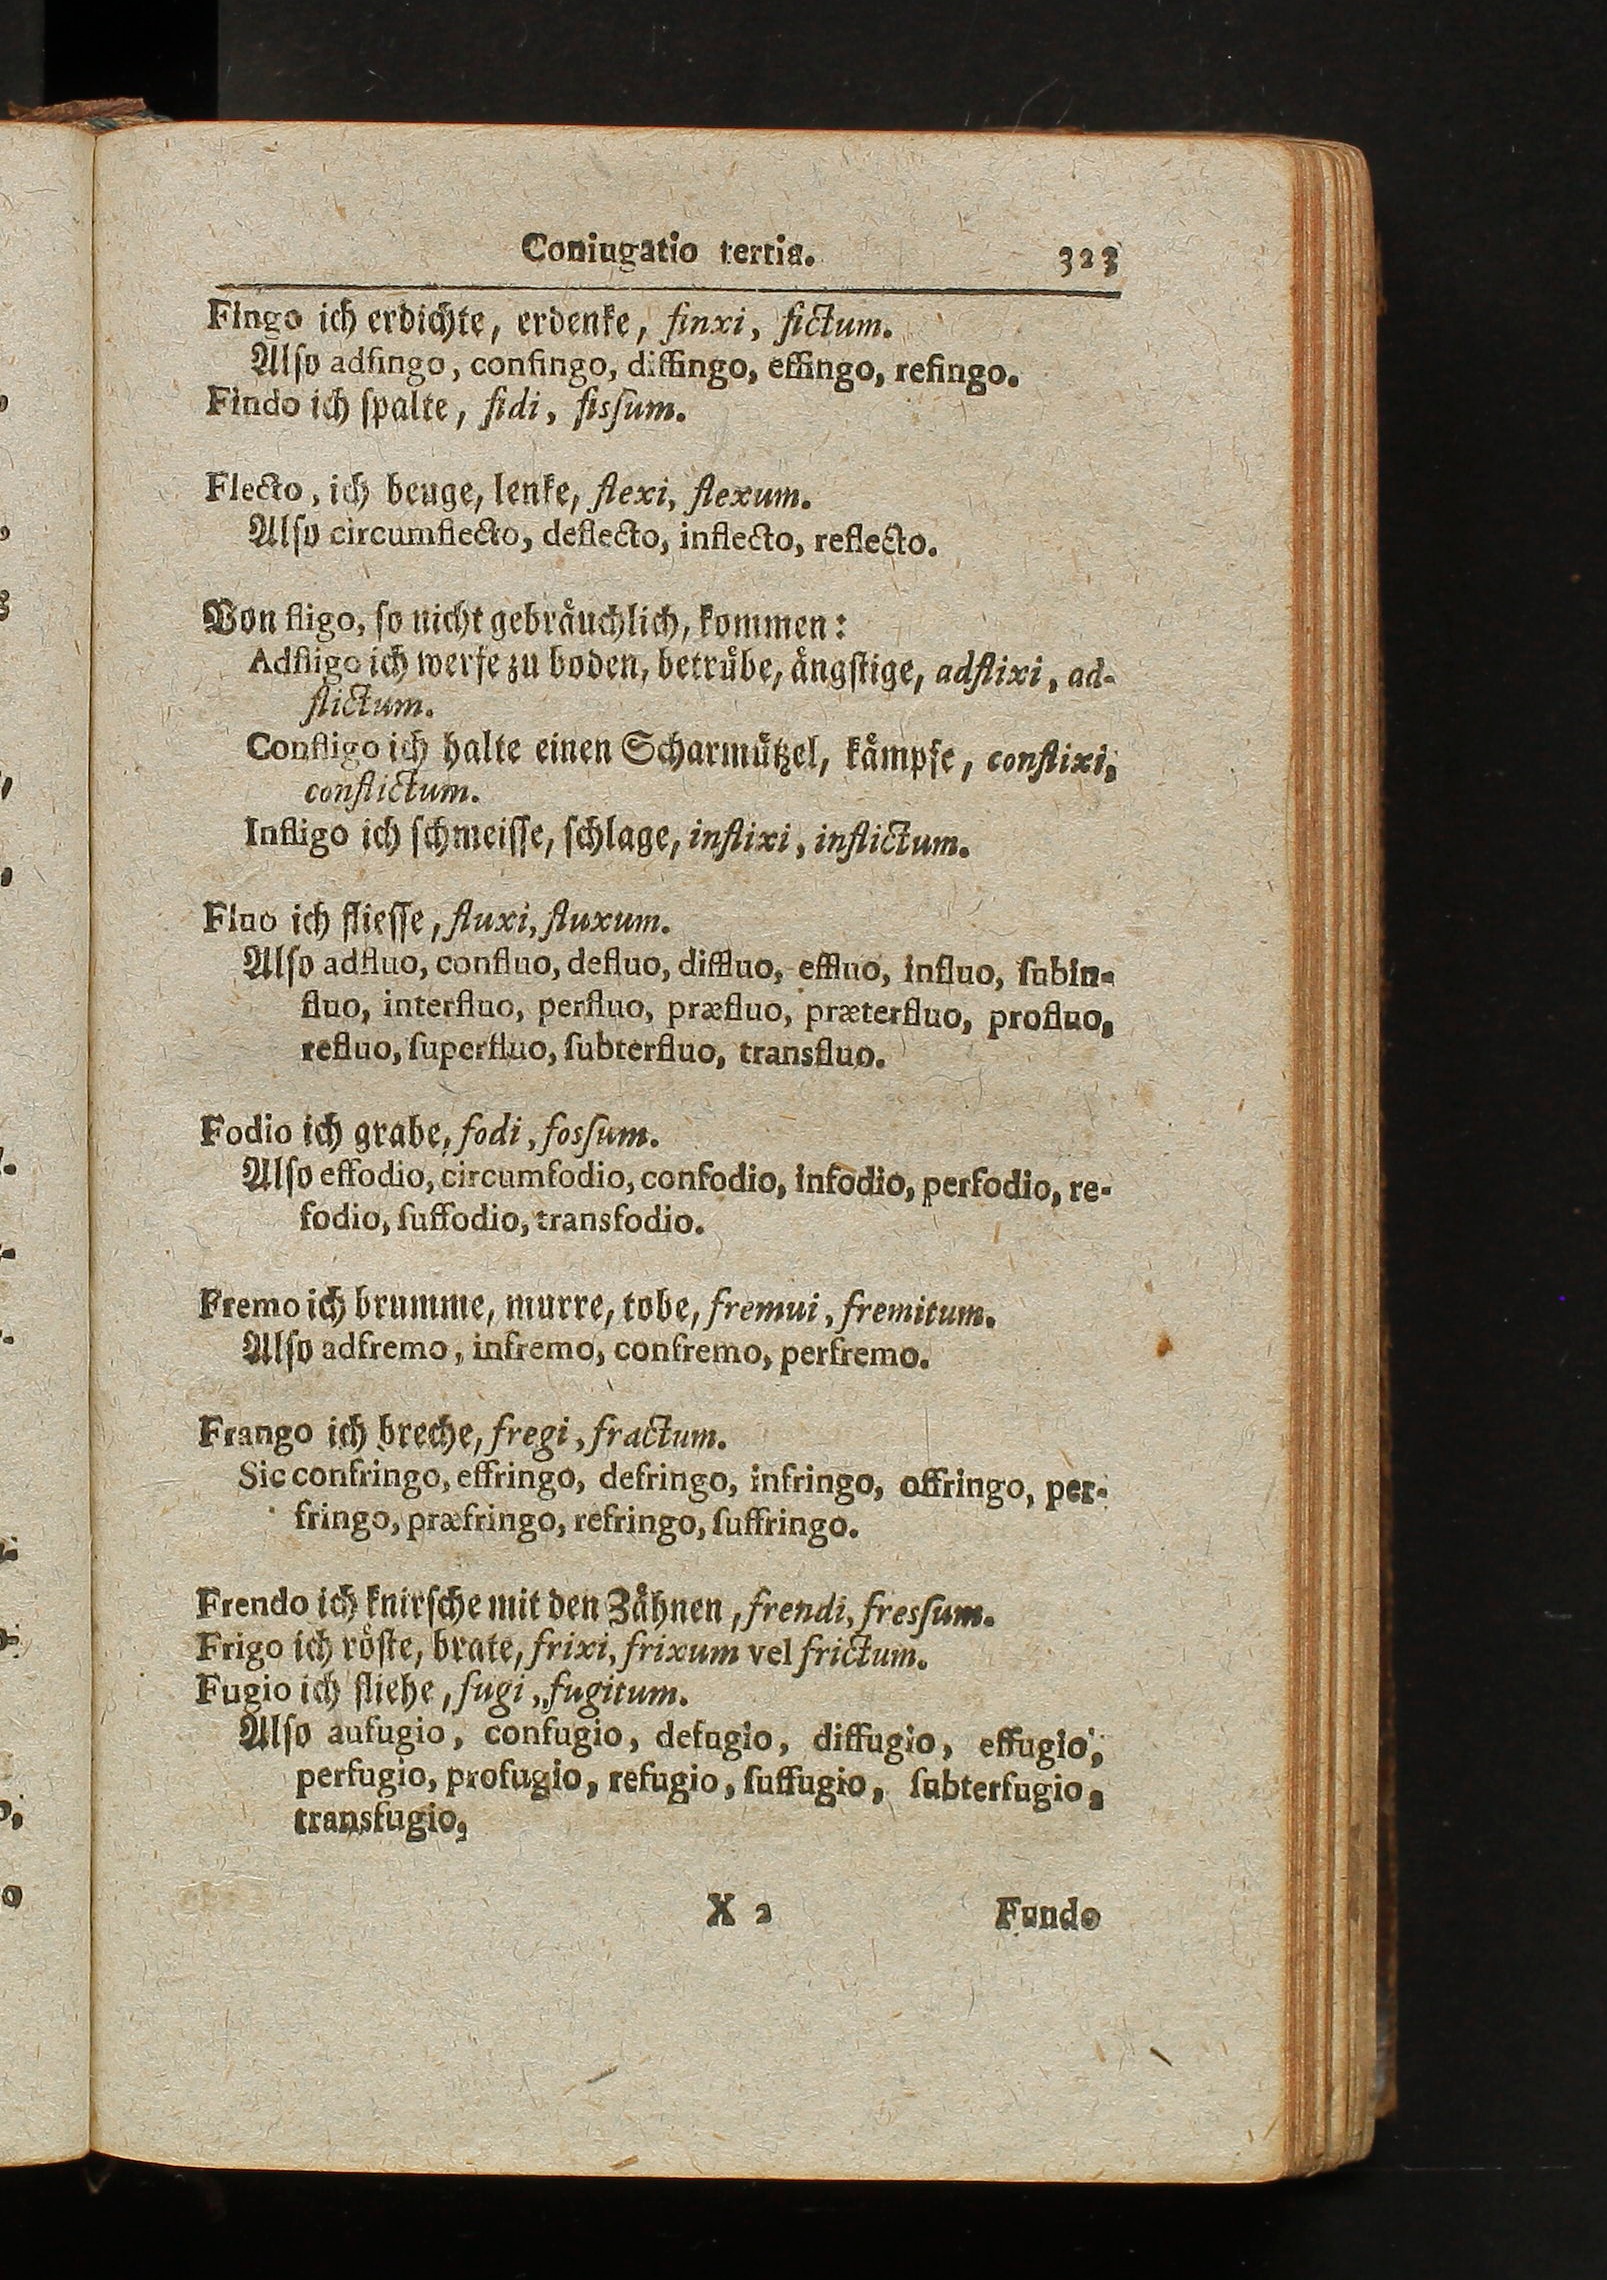 Coniugatio tertia. 323
Fingo ich erdichte, erdenke, finxi, fictum.
Also adfingo, confingo, diffingo, effingo, refingo.
Findo ich ſpalte, fidi, fisſum.
Flecto, ich beuge, lenke, flexi, flexum.
Also circumflecto, deflecto, inflecto, reflecto.
Von fligo, ſo nicht gebraͤuchlich, kommen:
Adfligo ich werfe zu boden, betruͤbe, aͤngſtige, adflixi, ad-
flictum.
Confligo ich halte einen Scharmuͤtzel, kaͤmpfe, conflixi,
conflictum.
Infligo ich ſchmeiſſe, ſchlage, inflixi, inflictum.
Fluo ich flieſſe, fluxi, fluxum.
Alſo adfluo, confluo, defluo, diffluo, effluo, influo, ſubin-
fluo, interfluo, perfluo, præfluo, præterfluo, profluo,
refluo, ſuperfluo, ſubterfluo, transfluo.
Fodio ich grabe, fodi, fosſum.
Alſo effodio, circumfodio, confodio, infodio, perfodio, re-
fodio, ſuffodio, transfodio.
Fremo ich brumme, murre, tobe, fremui, fremitum.
Alſo adfremo, infremo, confremo, perfremo.
Frango ich breche, fregi, fractum.
Sic confringo, effringo, defringo, infringo, offringo, per-
fringo, præfringo, refringo, ſuffringo.
Frendo ich knirſche mit den Zaͤhnen, frendi, fresſum.
Frigo ich roͤſte, brate, frixi, frixum vel frictum.
Fugio ich fliehe, fugi, fugitum.
Alſo aufugio, confugio, defugio, diffugio, effugio,
perfugio, profugio, refugio, ſuffugio, ſubterfugio,
transfugio,
X 2 Fundo